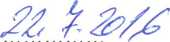 22. 7. 2016